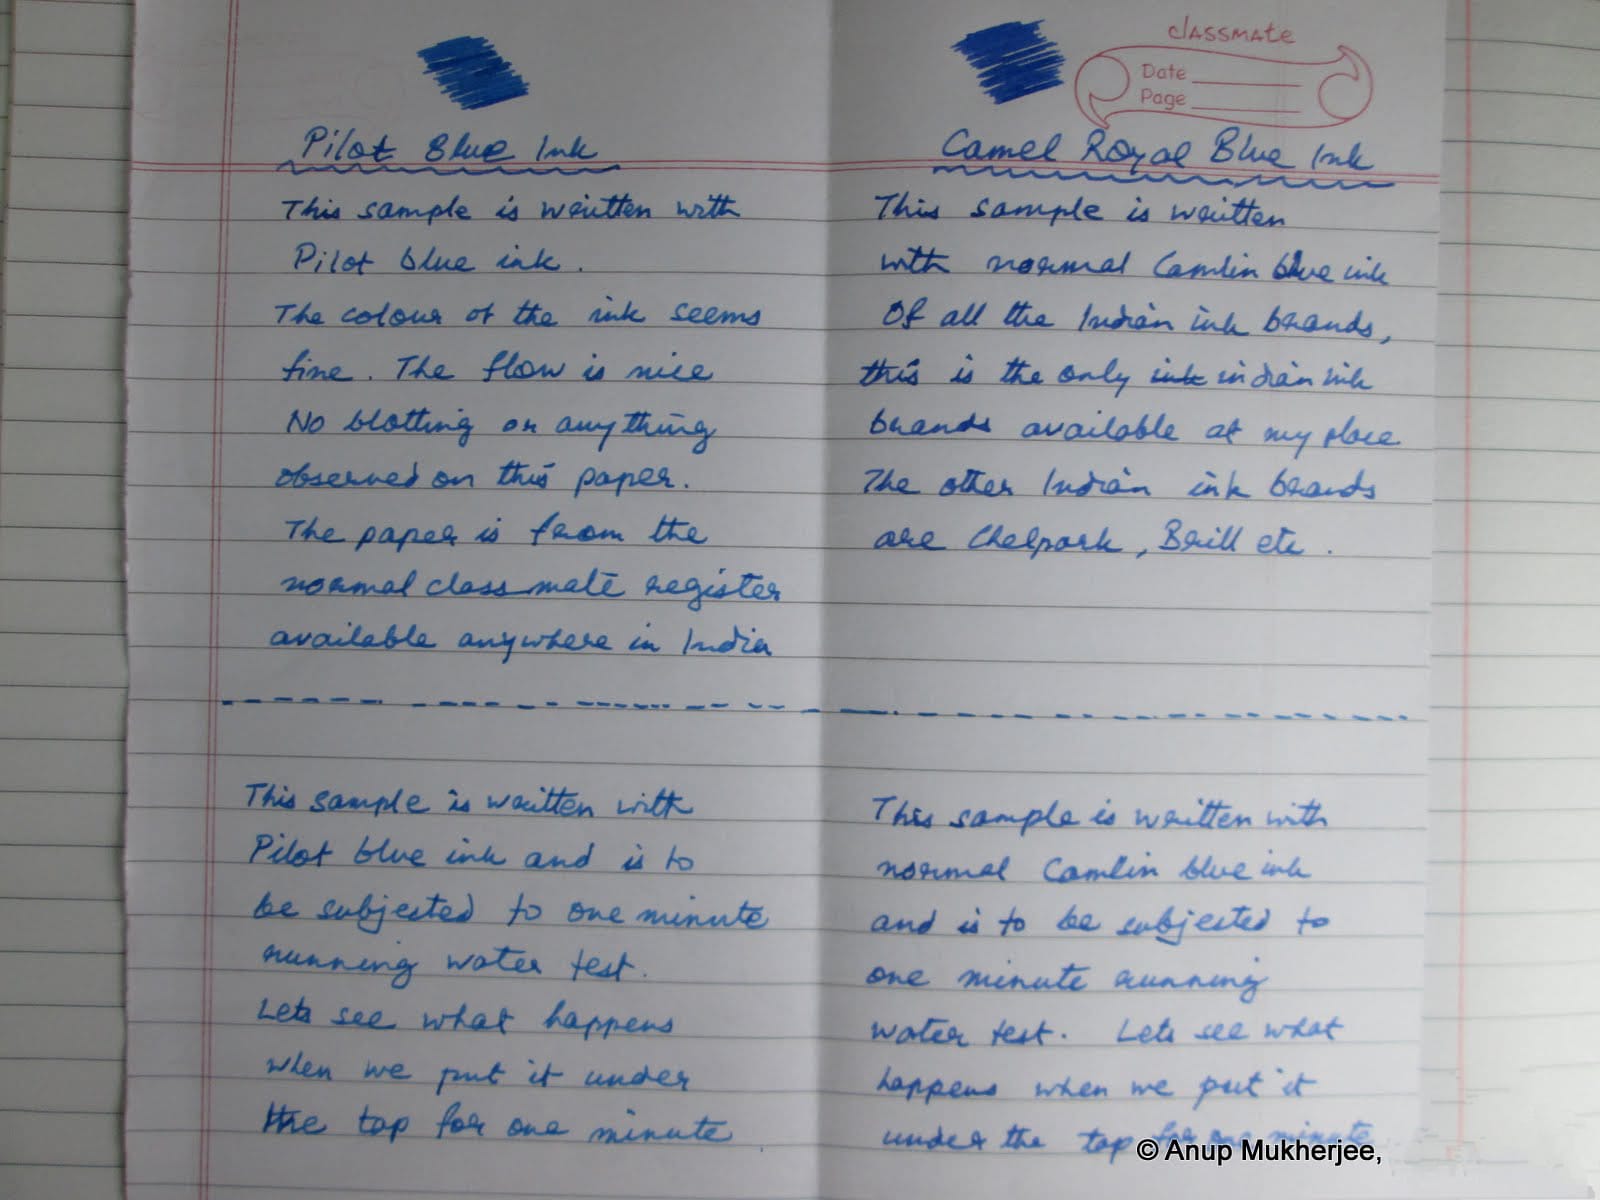 Pilot Blue Ink
This sample is written with
Pilot blue ink.
The colour of the ink seems
fine. The flow is nice
No blotting or anything
observed on this paper.
The paper is from the
normal classmate register
available anywhere in India
This sample is written with
Pilot blue ink and is to
be subjected to one minute
running water test.
Lets see what happens
when we put it under
the tap for one minute
classmate
Date
Page
Camel Royal Blue Ink
This sample is written
with normal Camlin blue ink
Of all the Indian ink brands,
this is the only ink indian ink
brands available at my place.
The other Indian ink brands
are Chelpark, Brill etc.
This sample is written with
normal Camlin blue ink
and is to be subjected to
one minute running
water test. Lets see what
happens when we put it
under the tap for one minute
© Anup Mukherjee,